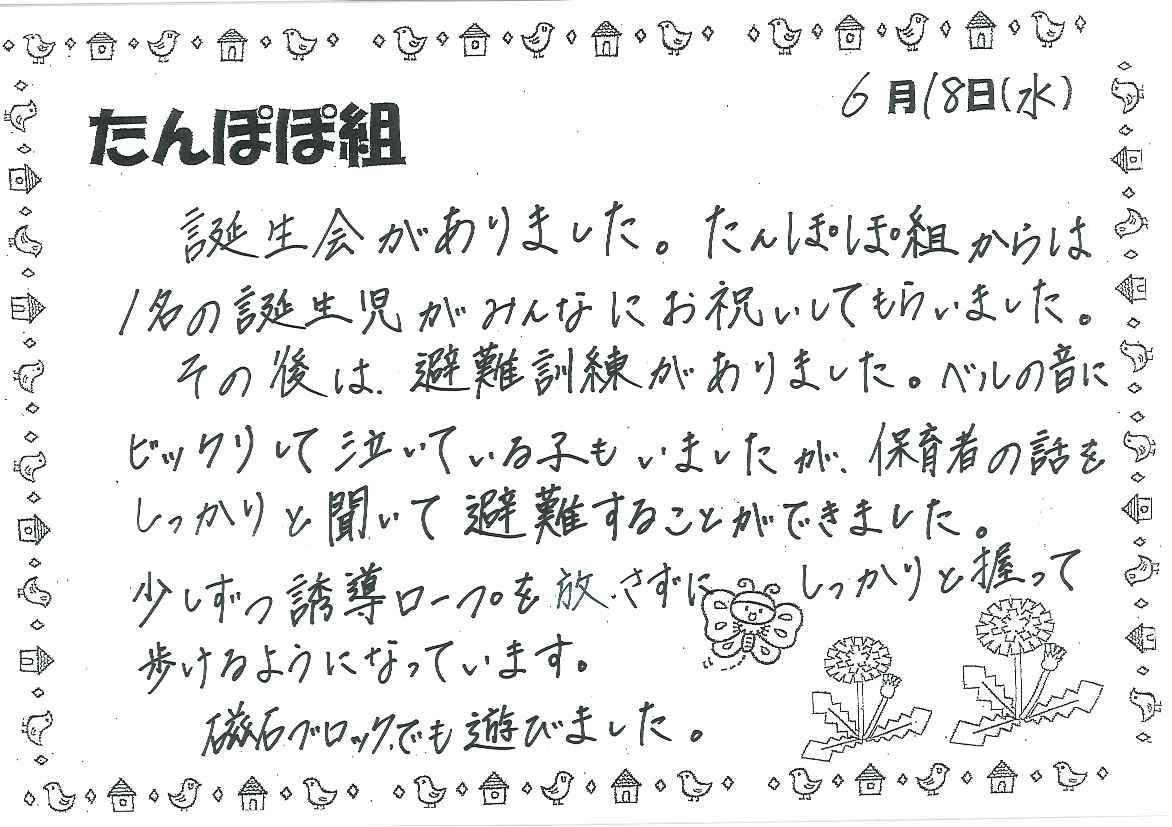 6月18日(水)
たんぽぽ組
誕生会がありました。たんぽぽ組からは
1名の誕生児がみんなにお祝いしてもらいました。
その後は、避難訓練がありました。ベルの音に
ビックリして泣いている子もいましたが、保育者の話を
しっかりと聞いて避難することができました。
少しずつ誘導ロープを放さずに しっかりと握って
歩けるようになっています。
磁石ブロックでも遊びました。